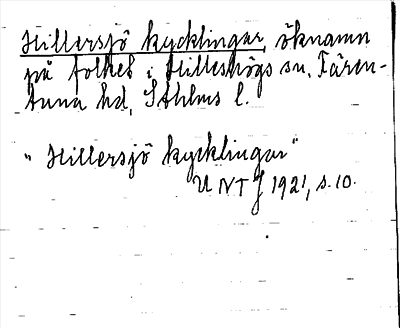 Hillersjö kycklingar, öknamn
på folket i Hilleshögs sn, Fären-
tuna hd, Sthlms l.
"Hillersjö kycklingar"
UNTJ 1921, s. 10.